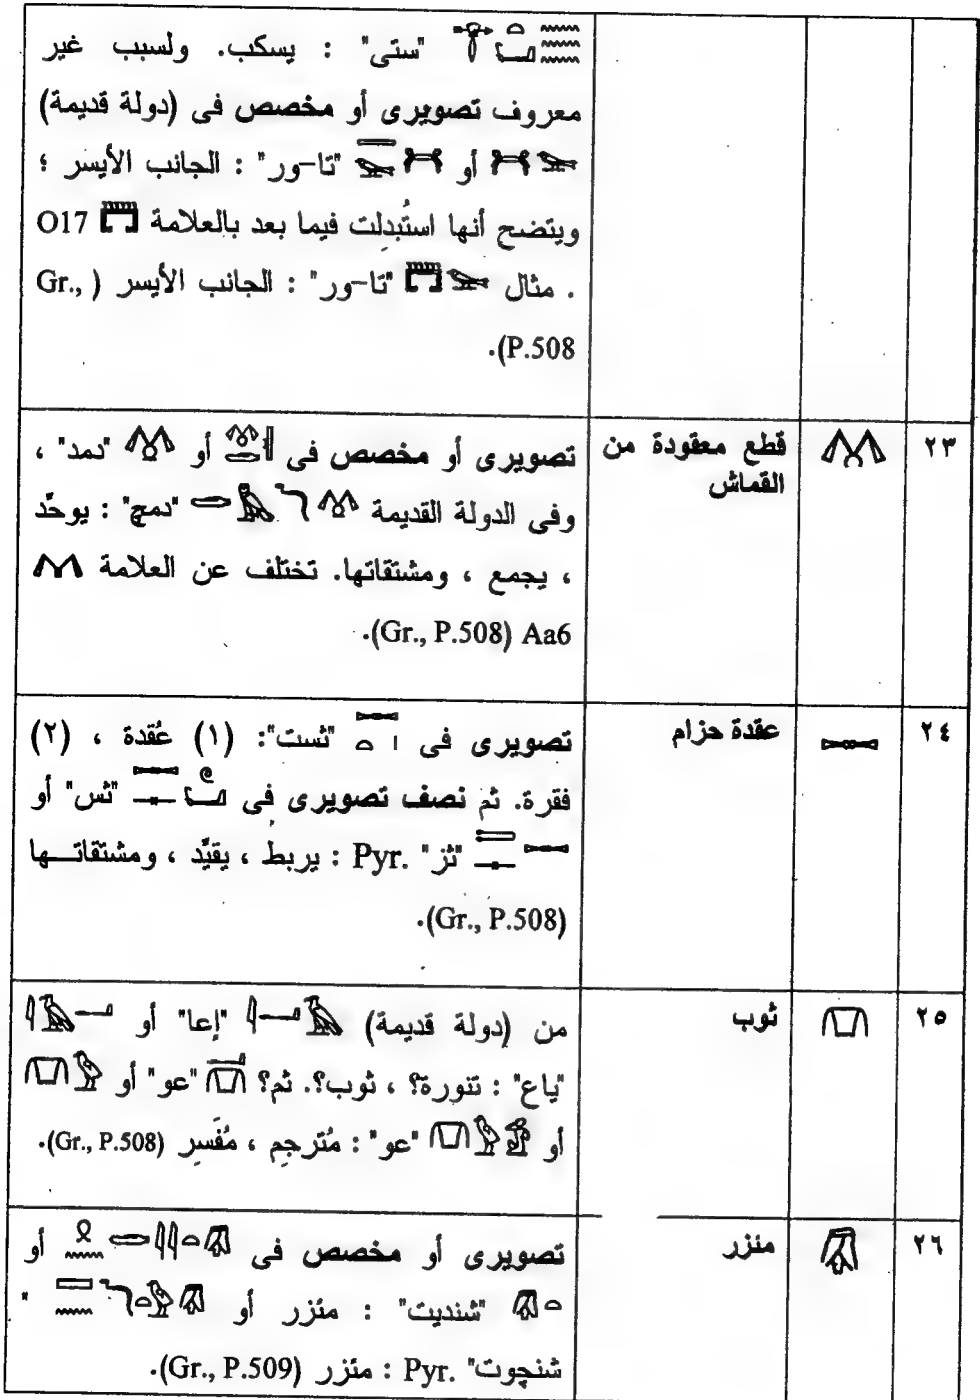 "ستى" : يسكب. ولسبب غير
معروف تصويرى أو مخصص فى (دولة قديمة)
أو "تا-ور" : الجانب الأيسر ؛
ويتضح أنها استُبدِلت فيما بعد بالعلامة O17
. مثال "تا-ور" : الجانب الأيسر (Gr.,
P.508).
٢٣
قطع معقودة من
القماش
تصويرى أو مخصص فى أو "دمد" ،
وفى الدولة القديمة "دمچ" : يوحّد
، يجمع ، ومشتقاتها. تختلف عن العلامة
Aa6 (Gr., P.508).
٢٤
عقدة حزام
تصويرى فى "ثست": (١) عُقدة ، (٢)
فقرة. ثم نصف تصويرى فى "ثس" أو
"ثز" Pyr. : يربط ، يقيّد ، ومشتقاتها
(Gr., P.508).
٢٥
ثوب
من (دولة قديمة) "إعا" أو
"ياع" : تنورة؟ ، ثوب؟. ثم؟ "عو" أو
أو "عو" : مُترجِم ، مُفَسِر (Gr., P.508).
٢٦
مئزر
تصويرى أو مخصص فى أو
"شنديت" : مئزر أو "
شنچوت" Pyr. : مئزر (Gr., P.509).